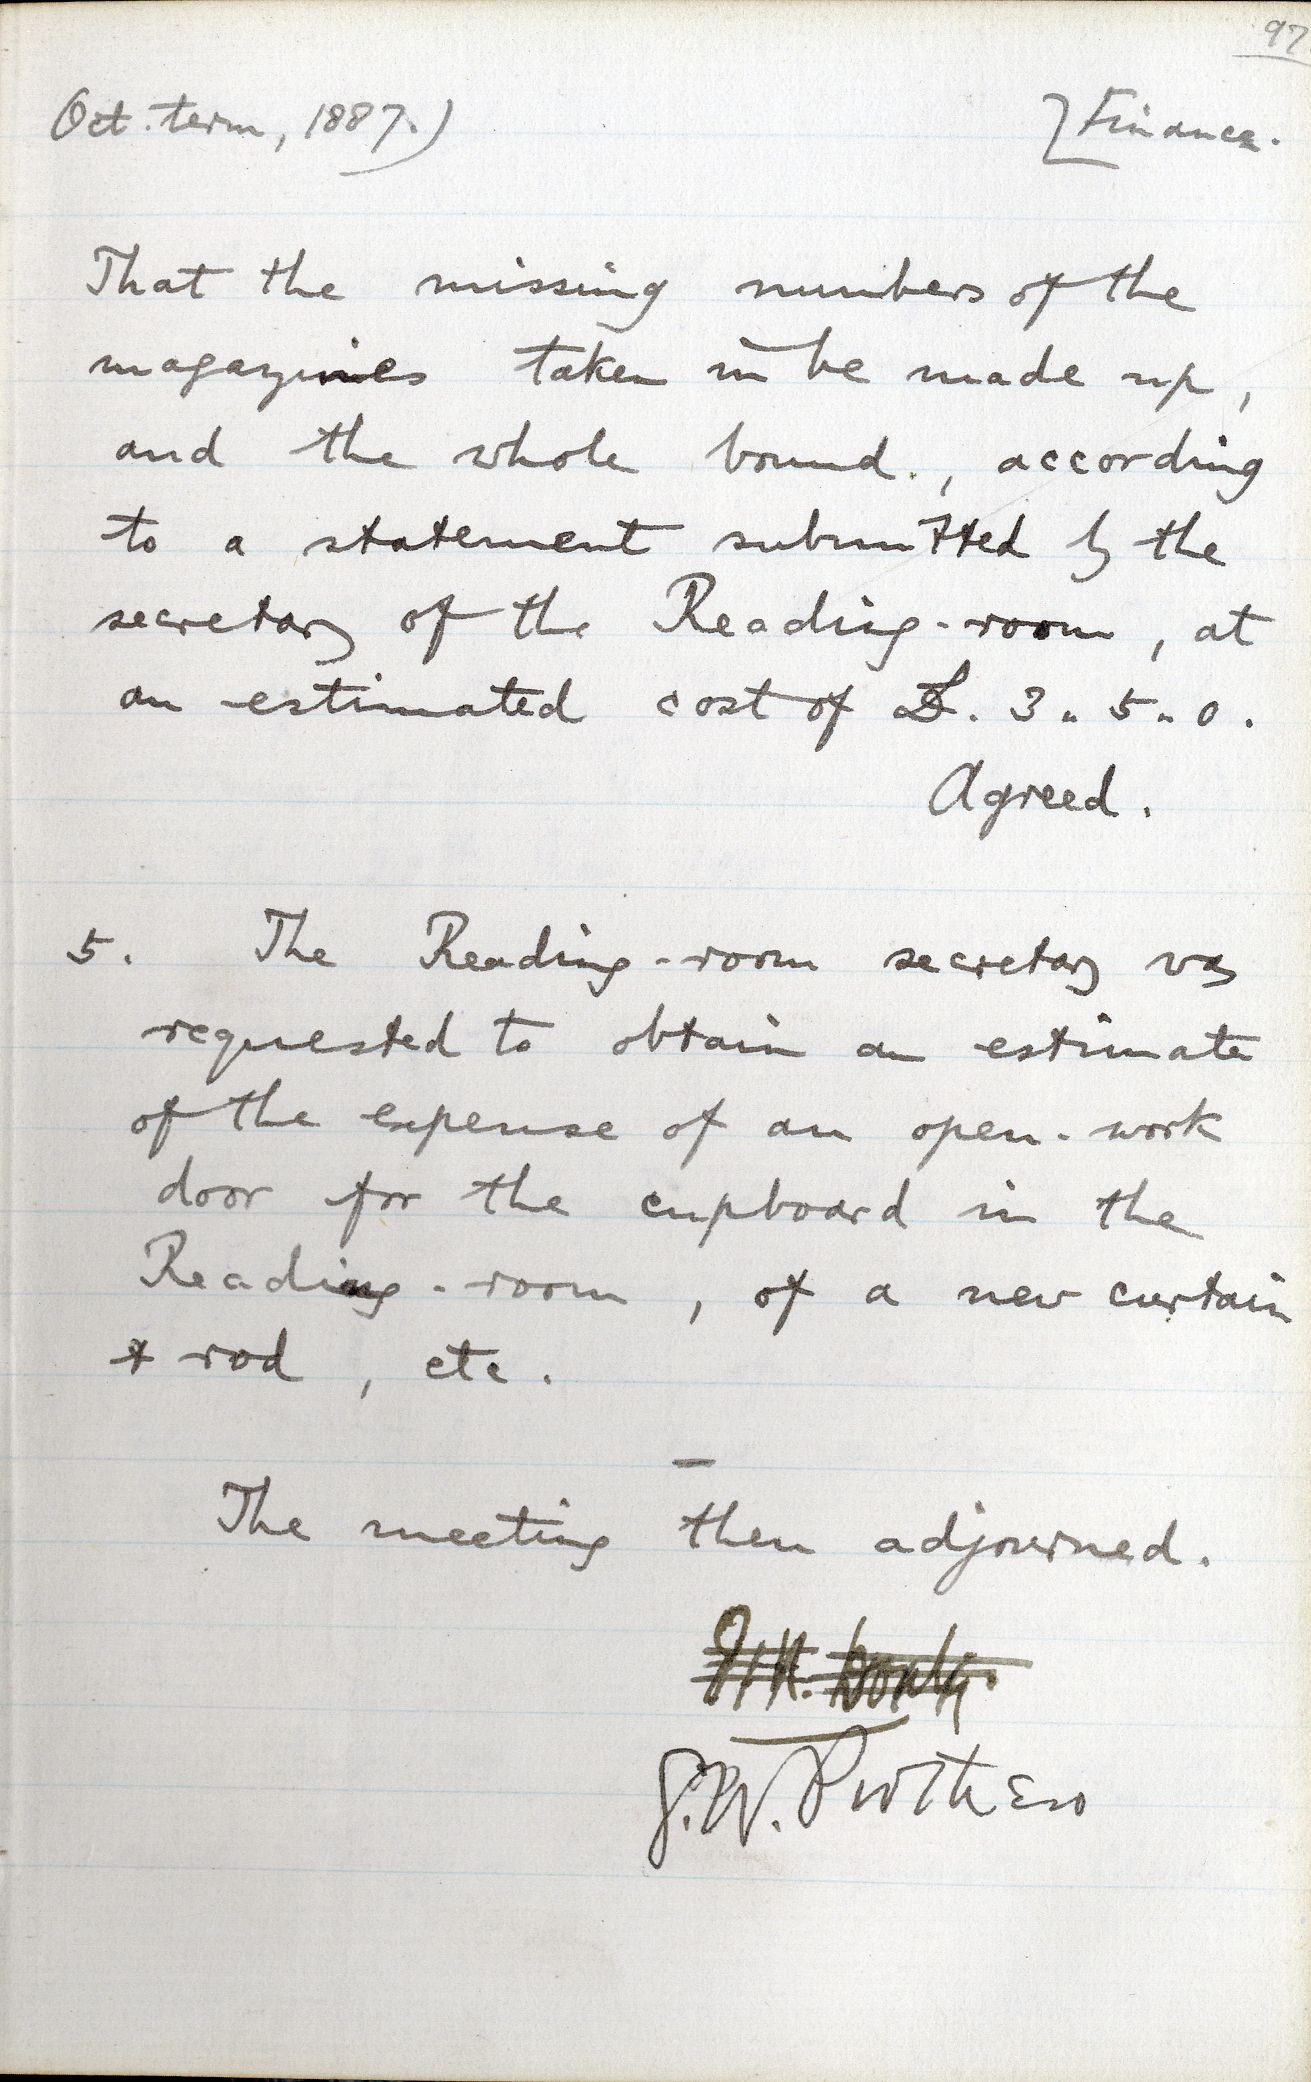 97
Oct. term, 1887.) [Finance.
That the missing numbers of the
magazines taken in be made up,
and the whole bound, according
to a statement submitted by the
secretary of the Reading-room, at
an estimated cost of £. 3 " 5 " 0.
Agreed.
5. The Reading-room secretary was
requested to obtain an estimate
of the expense of an open-work
door for the cupboard in the
Reading-room, of a new curtain
& rod, etc.
The meeting then adjourned.
G. W. Prothero